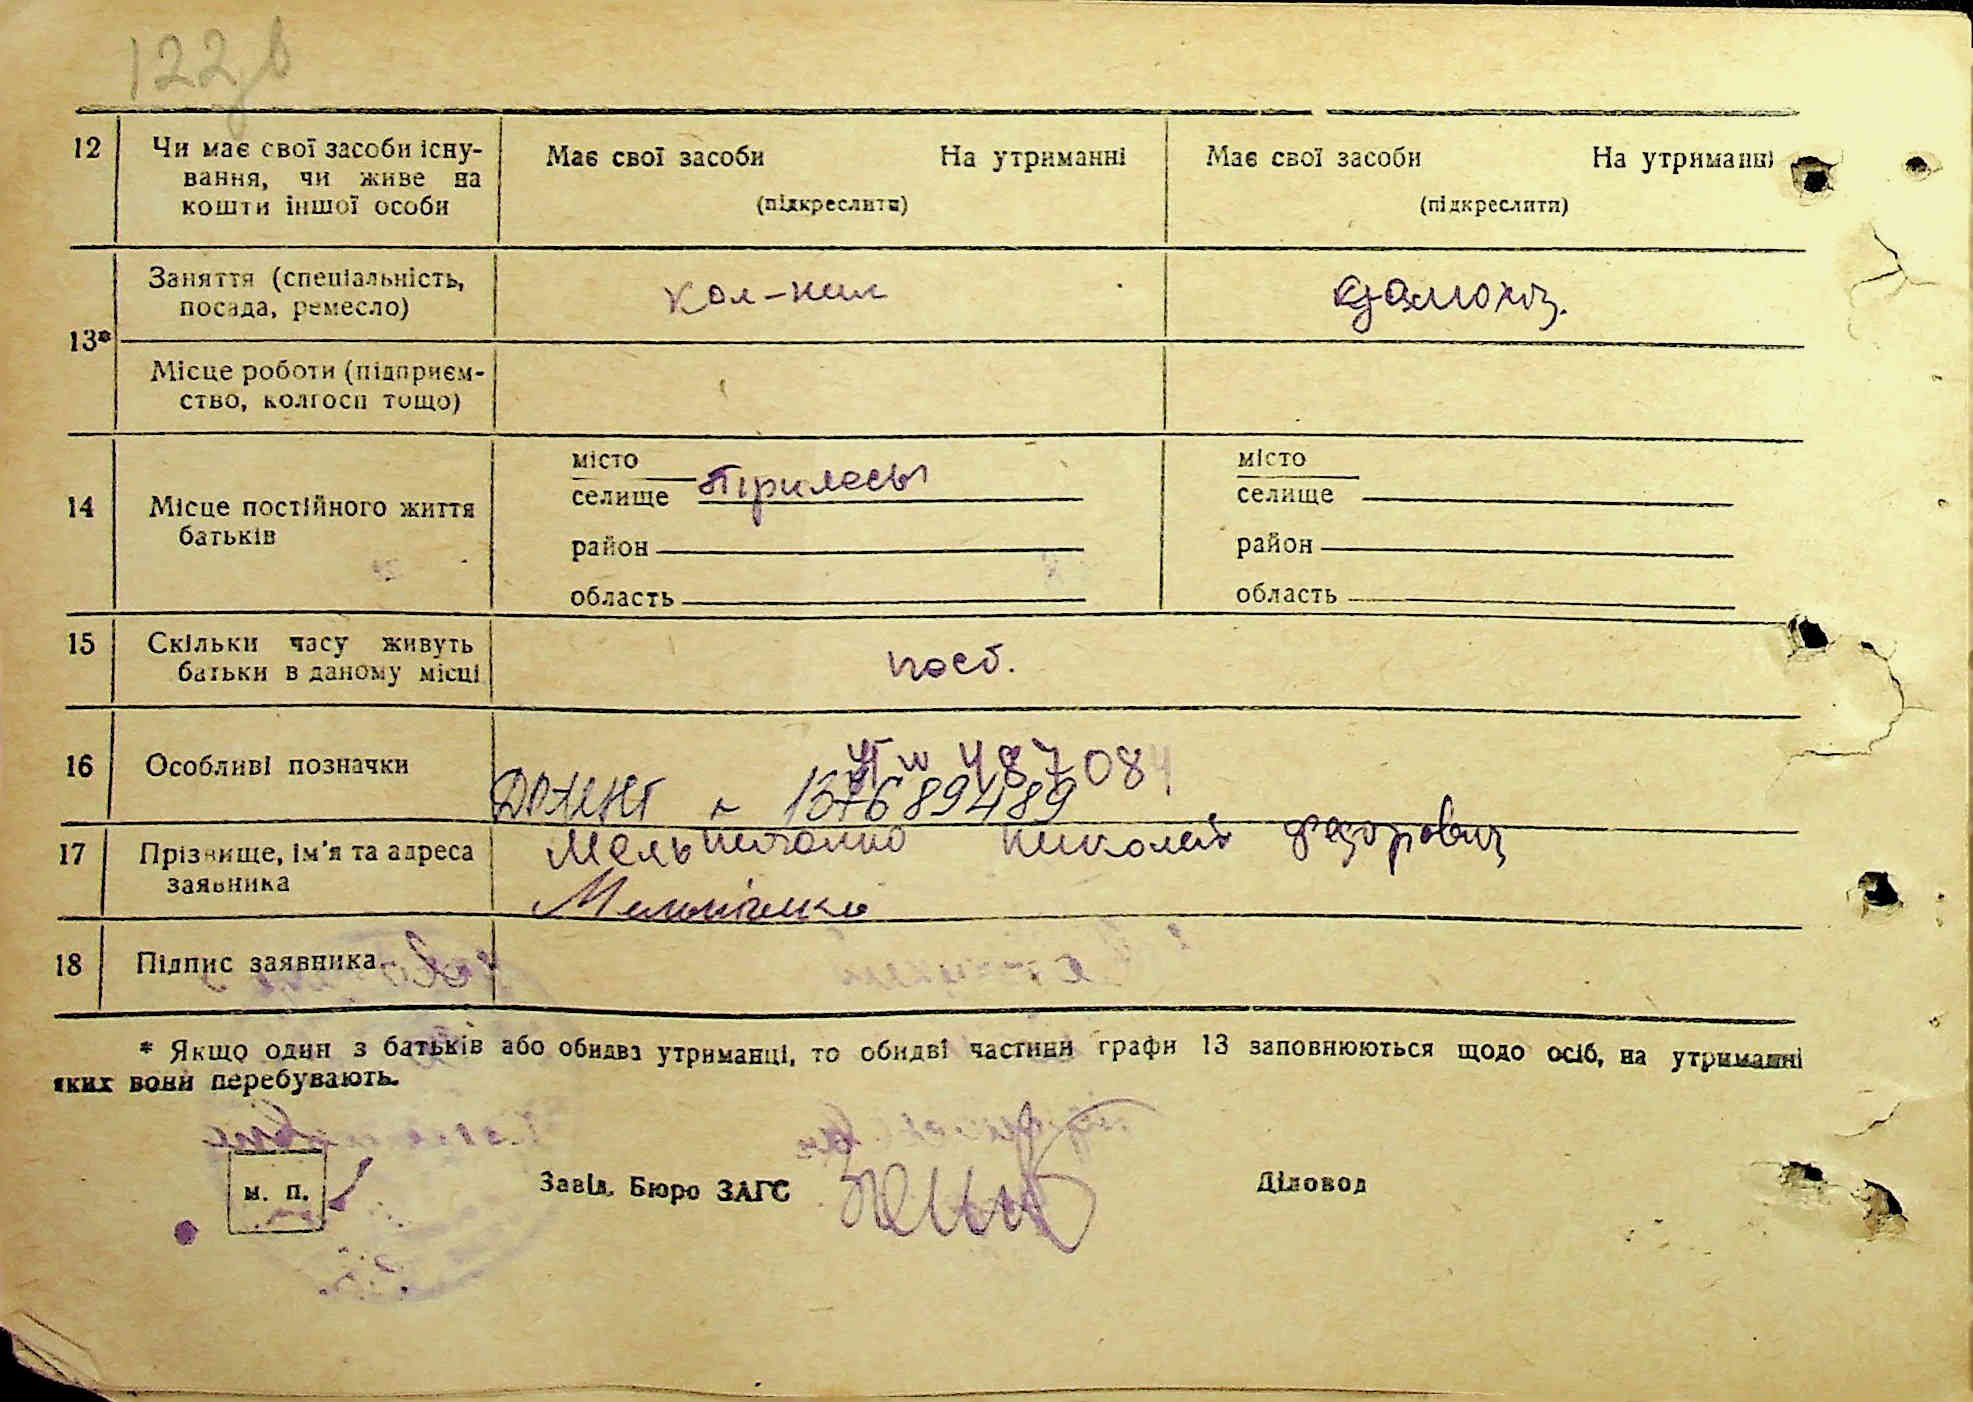 122 в
12 Чи має свої засоби існу-
вання, чи живе на
кошти іншої особи
Має свої засоби На утриманні
(підкреслити)
Має свої засоби На утриманні
(підкреслити)
13*
Заняття (спеціальність,
посада, ремесло)
кол-ник
домохоз.
Місце роботи (підприєм-
ство, колгосп тощо)
14 Місце постійного життя
батьків
місто
селище Прилесы
район
область
місто
селище
район
область
15 Скільки часу живуть
батьки в даному місці
пост.
16 Особливі позначки
487084
N 137689489
17 Прізвище, ім'я та адреса
заявника
Мельниченко Николай Федорович
Мельниченко
18 Підпис заявника
* Якщо один з батьків або обидва утриманці, то обидві частини графи 13 заповнюються щодо осіб, на утриманні
яких вони перебувають.
м. п.
Завід. Бюро ЗАГС
Діловод